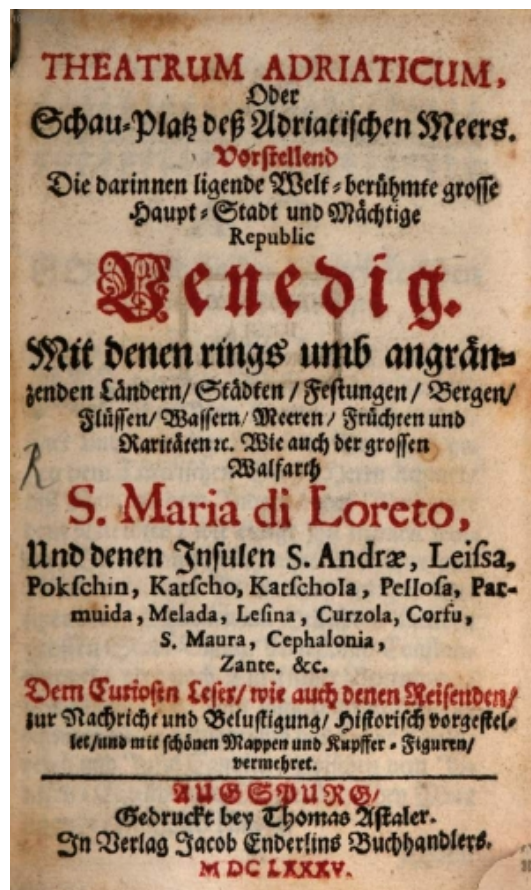 THEATRUM ADRIATICUM,
Oder
Schau-Platz deß Adriatischen Meers.
Vorstellend
Die darinnen ligende Welt-berühmte grosse
Haupt-Stadt und Mächtige
Republic
Venedig.
Mit denen rings umb angrän-
zenden Ländern/ Städten / Festungen / Bergen/
Flüssen/ Wassern/ Meeren/ Früchten und
Raritäten ꝛc. Wie auch der grossen
Walfarth
S. Maria di Loreto,
Und denen Insulen S. Andræ, Leissa,
Pokschin, Katscho, Katschola, Pellosa, Par-
muida, Melada, Lesina, Curzola, Corfu,
S. Maura, Cephalonia,
Zante. &c.
Dem Curiosen Leser/ wie auch denen Reisenden/
zur Nachricht und Belustigung/ Historisch vorgestel-
let/und mit schönen Mappen und Kupffer-Figuren/
vermehret.
AUGSPURG/
Gedruckt bey Thomas Astaler.
In Verlag Jacob Enderlins Buchhandlers.
M DC LXXXV.